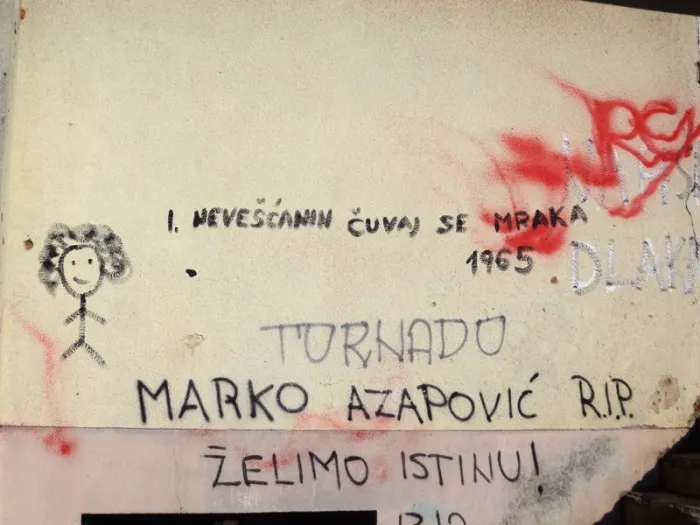 I. NEVEŠĆANIN ČUVAJ SE MRAKA
1965
DLAK
TORNADO
MARKO AZAPOVIĆ R.I.P.
ŽELIMO ISTINU!